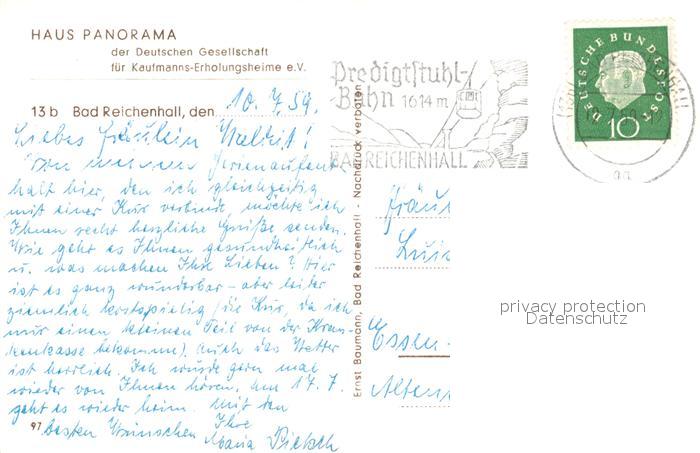 HAUS PANORAMA
der Deutschen Gesellschaft
für Kaufmanns-Erholungsheime e.V.
13 b Bad Reichenhall, den 10. 7. 59.
Liebes Fräulein Waltrit!
Von meinem Ferienaufent-
halt hier, den ich gleichzeitig
mit einer Kur verbinde, möchte ich
Ihnen recht herzliche Grüße senden.
Wie geht es Ihnen gesundheitlich
u. was machen Ihre Lieben? Hier
ist es ganz wunderbar - aber leider
ziemlich kostspielig (die Kur, da ich
nur einen kleinen Teil von der Kran-
kenkasse bekomme). Auch das Wetter
ist herrlich. Ich würde gern mal
wieder von Ihnen hören. Am 17. 7.
geht es wieder heim. Mit den
besten Wünschen Ihre
Maria
97
Ernst Baumann, Bad Reichenhall - Nachdruck verboten
Predigtstuhl-
Bahn 1614 m
BAD REICHENHALL
DEUTSCHE BUNDESPOST
10
Fräul
Luis
Essen-
Alten
privacy protection
Datenschutz